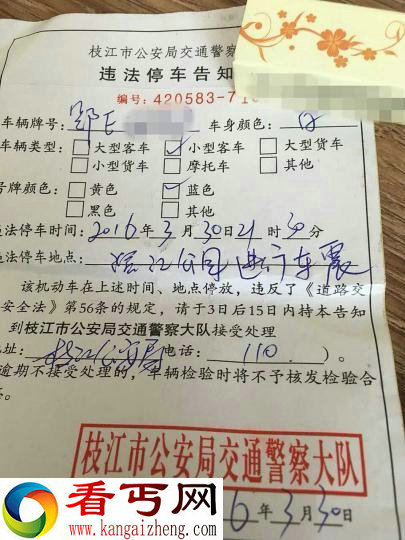 枝江市公安局交通警察
违法停车告知
编号:420583-71
车辆牌号: 鄂E 车身颜色: 白
车辆类型: 大型客车 小型客车 大型货车
小型货车 摩托车 其他
号牌颜色: 黄色 蓝色
黑色 其他
违法停车时间: 2016年3月30日21时30分
违法停车地点: 沿江公园进行车震
该机动车在上述时间、地点停放,违反了《道路交
安全法》第56条的规定,请于3日后15日内持本告知
到枝江市公安局交通警察大队接受处理
地址: 枝江公安局 电话: 110 )。
逾期不接受处理的,车辆检验时将不予核发检验合
枝江市公安局交通警察大队
6年3月30
看丐网
www.kangaizheng.com